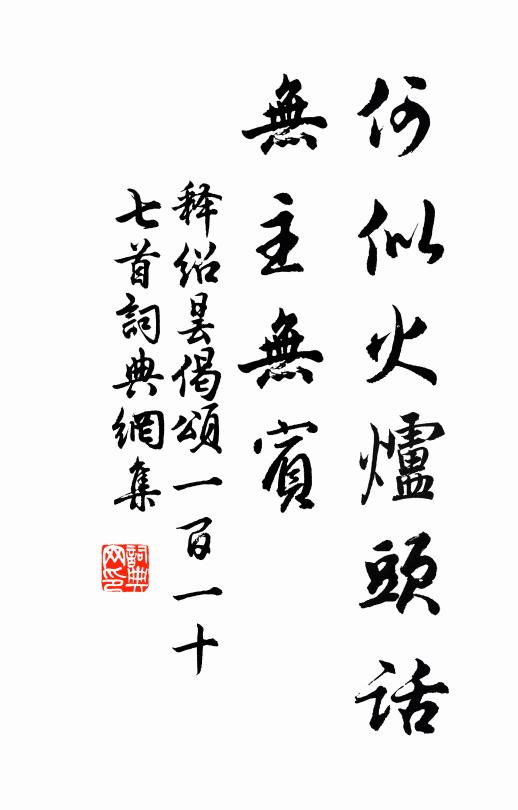 何似火爐頭話
無主無賓
释绍昙偈頌一百一十
七首詞典網集
詞典网印